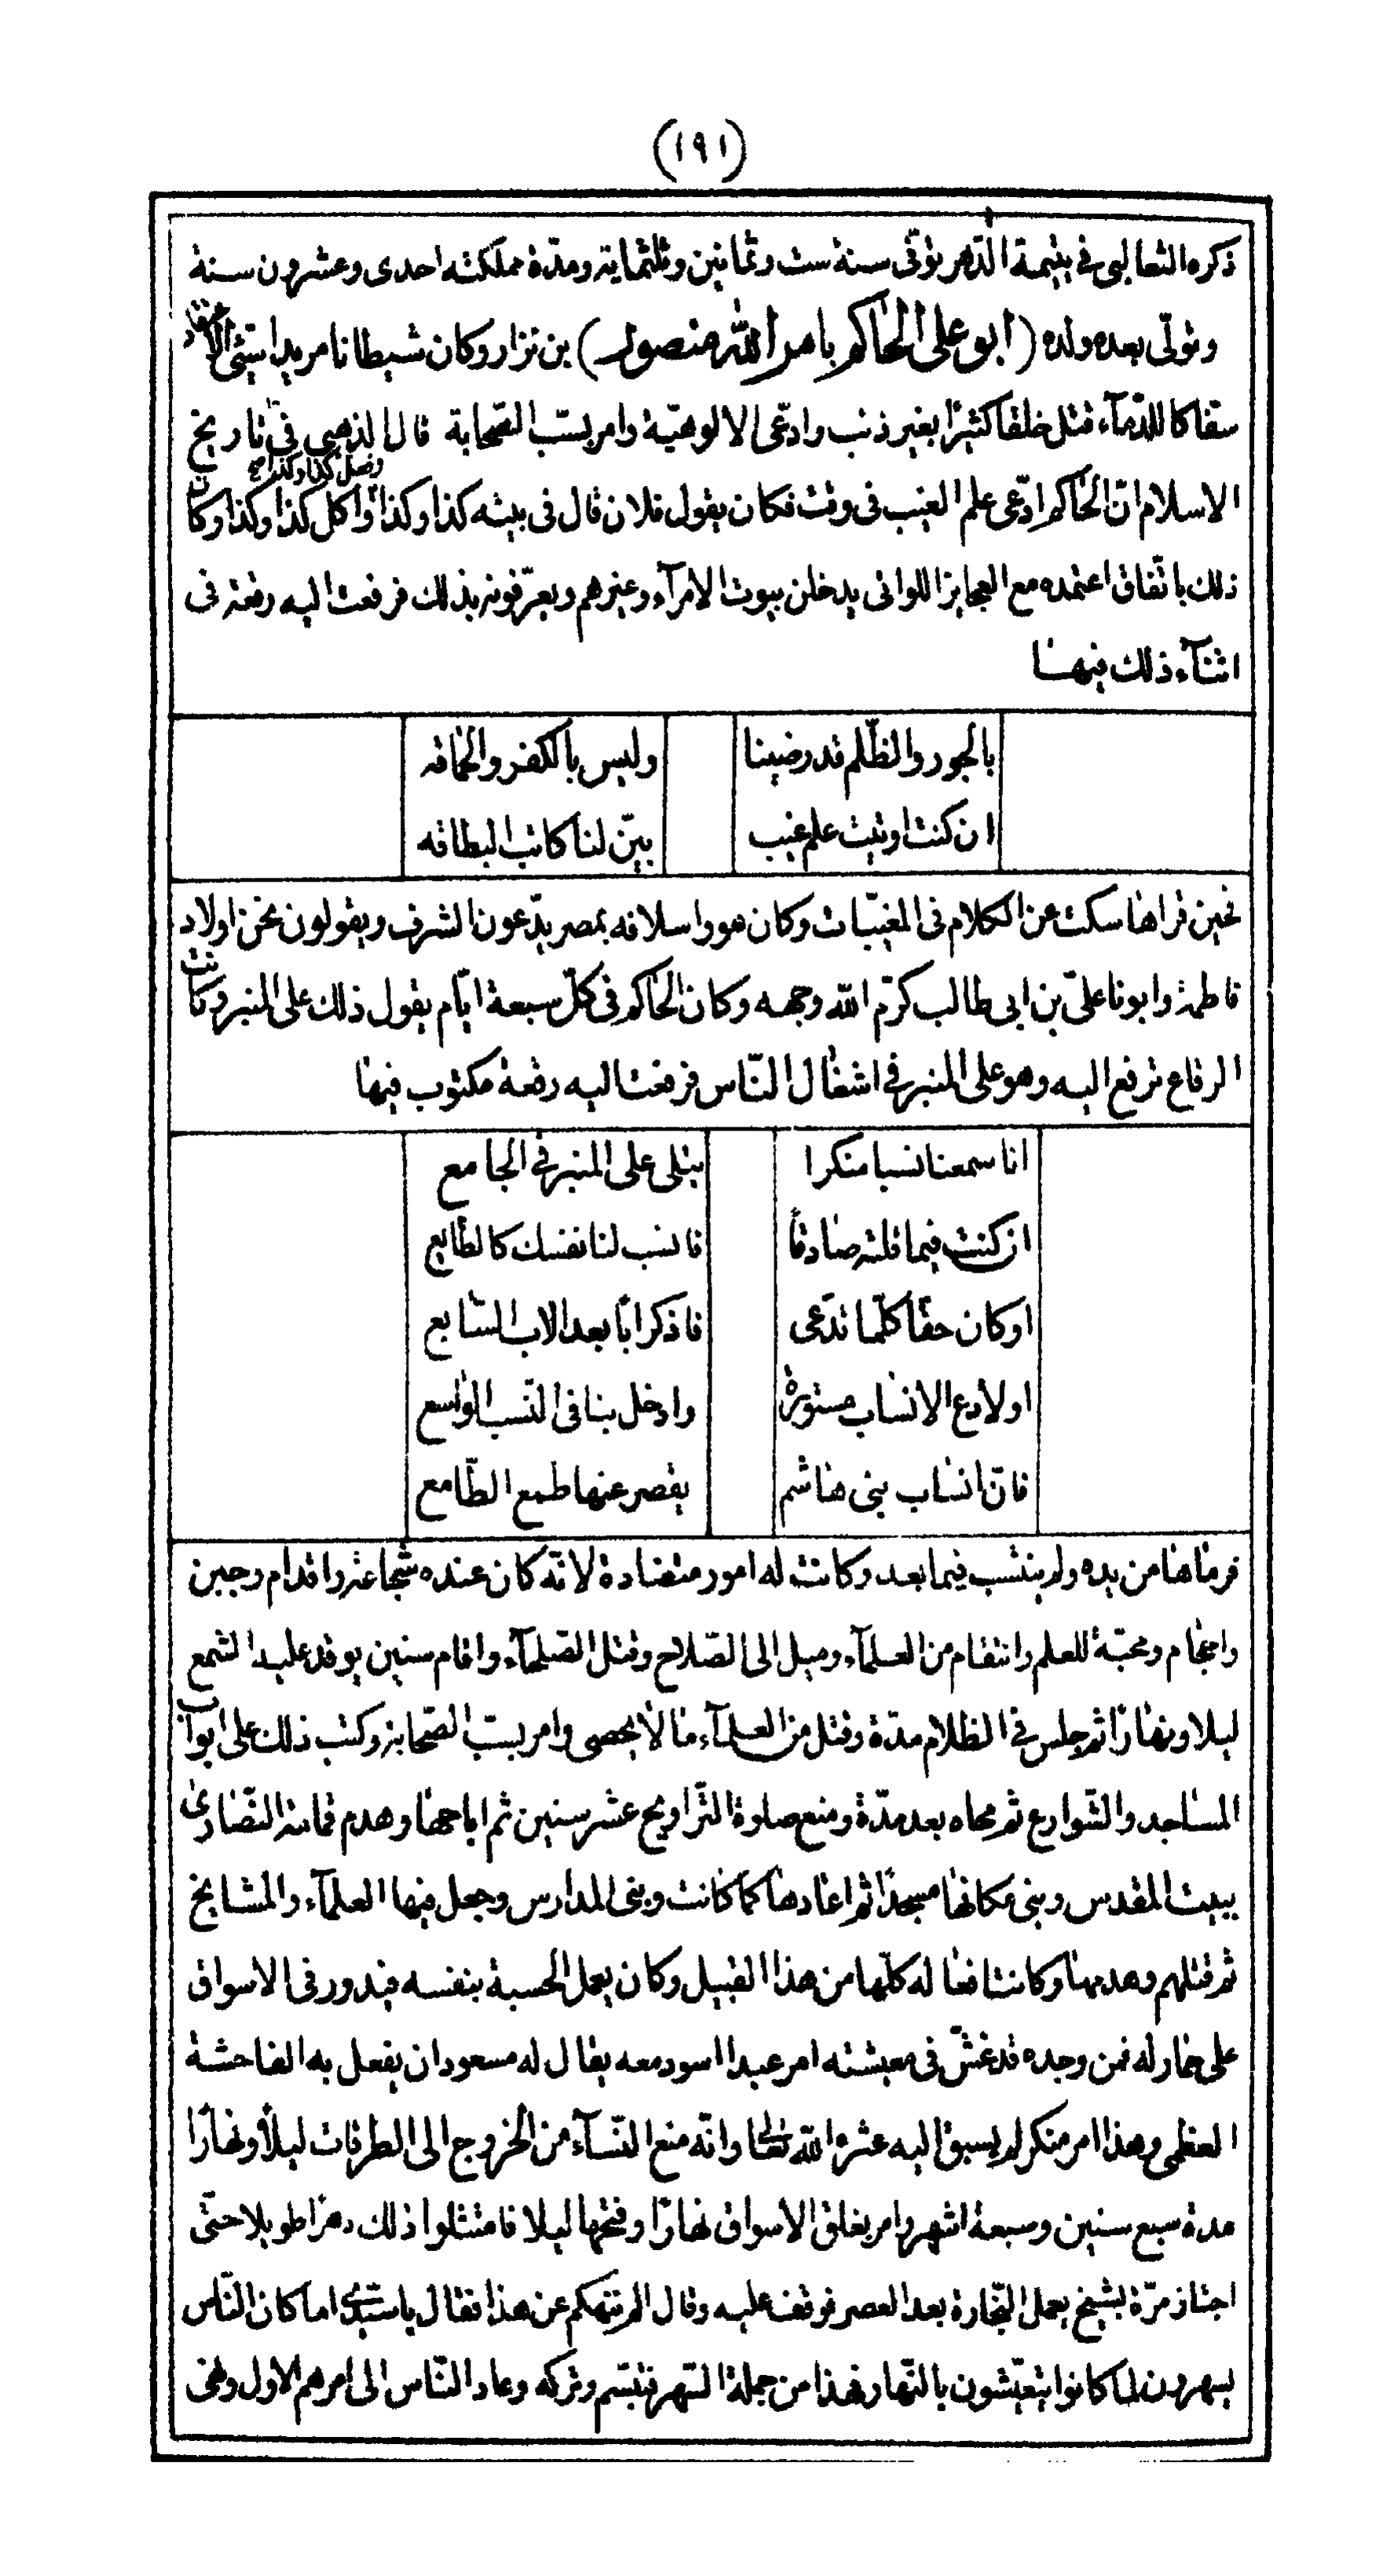 (١٩١)
ذكره الثعالبى فى يتيمة الدّهر توفّى سنة ست وثمانين وثلثماية ومدّة مملكته احدى وعشرون سنة
وتولّى بعده ولده (ابو على الحاكم بامر الله منصور) بن نزار وكان شيطانا مريدا سيّئ الاعتقاد
سفّاكا للدّمآء قتل خلقا كثيرًا بغير ذنب وادّعى الالوهيّة وامر بسبّ الصّحابة قال الذهبى فى تاريخ
الاسلام انّ الحاكم ادّعى علم الغيب فى وقت فكان يقول فلان قال فى بيته كذا وكذا وفعل كذا وكذا واكل كذا وكذا وكان
ذلك باتّفاق اعتمده مع العجايز اللواتى يدخلن بيوت الامرآء وغيرهم ويعرّفونه بذلك فرفعت اليه رقعة فى
اثنآء ذلك فيها
بالجور والظّلم قد رضينا وليس بالكفر والحماقه
ان كنت اوتيت علم غيب بيّن لنا كاتب البطاقه
فحين قراها سكت عن الكلام فى المغيّبات وكان هو واسلافه بمصر يدّعون الشرف ويقولون نحن اولاد
فاطمة وابونا علىّ بن ابى طالب كرّم الله وجهه وكان الحاكم فى كلّ سبعة ايّام يقول ذلك على المنبر وكانت
الرقاع ترفع اليه وهو على المنبر فى اشغال النّاس فرفعت اليه رقعة مكتوب فيها
انا سمعنا نسبا منكرا يتلى على المنبر فى الجامع
ان كنت فيما قلته صادقا فانسب لنا نفسك كالطّايع
او كان حقّا كلّما تدّعى فاذكر ابًا بعد الاب السّابع
اولا دع الانساب مستورة وادخل بنا فى النّسب الواسع
فانّ انساب بنى هاشم يقصر عنها طمع الطّامع
فرماها من يده ولم ينتسب فيما بعد وكانت له امور متضادة لانّه كان عنده شجاعة واقدام وجبن
واحجام ومحبّة للعلم وانتقام من العلمآء وميل الى الصّلاح وقتل الصّلحآء واقام سنين يوقد عليه الشمع
ليلا ونهارًا ثم جلس فى الظلام مدّة وقتل من العلمآء ما لا يحصى وامر بسبّ الصّحابة وكتب ذلك على ابواب
المساجد والشّوارع ثم محاه بعد مدّة ومنع صلوة التّراويح عشر سنين ثم اباحها وهدم قمامة النّصارى
ببيت المقدس وبنى مكانها مسجدًا ثم اعادها كما كانت وبنى المدارس وجعل فيها العلمآء والمشايخ
ثم قتلهم وهدمها وكانت افعاله كلّها من هذا القبيل وكان يعمل الحسبة بنفسه فيدور فى الاسواق
على حمار له فمن وجده قد غشّ فى معيشته امر عبدا اسود معه يقال له مسعود ان يفعل به الفاحشة
العظمى وهذا امر منكر لم يسبق اليه عثره الله تعالى وانّه منع النّسآء من الخروج الى الطرقات ليلًا ونهارًا
مدة سبع سنين وسبعة اشهر وامر بغلق الاسواق نهارًا وفتحها ليلا فامتثلوا ذلك دهرًا طويلا حتّى
اجتاز مرّة بشيخ يعمل النّجارة بعد العصر فوقف عليه وقال الم ننهكم عن هذا فقال يا سيّدى اما كان النّاس
يسهرون لما كانوا يتعيّشون بالنّهار فهذا من جملة السّهر فتبسّم وتركه وعاد النّاس الى امرهم الاول ونهى